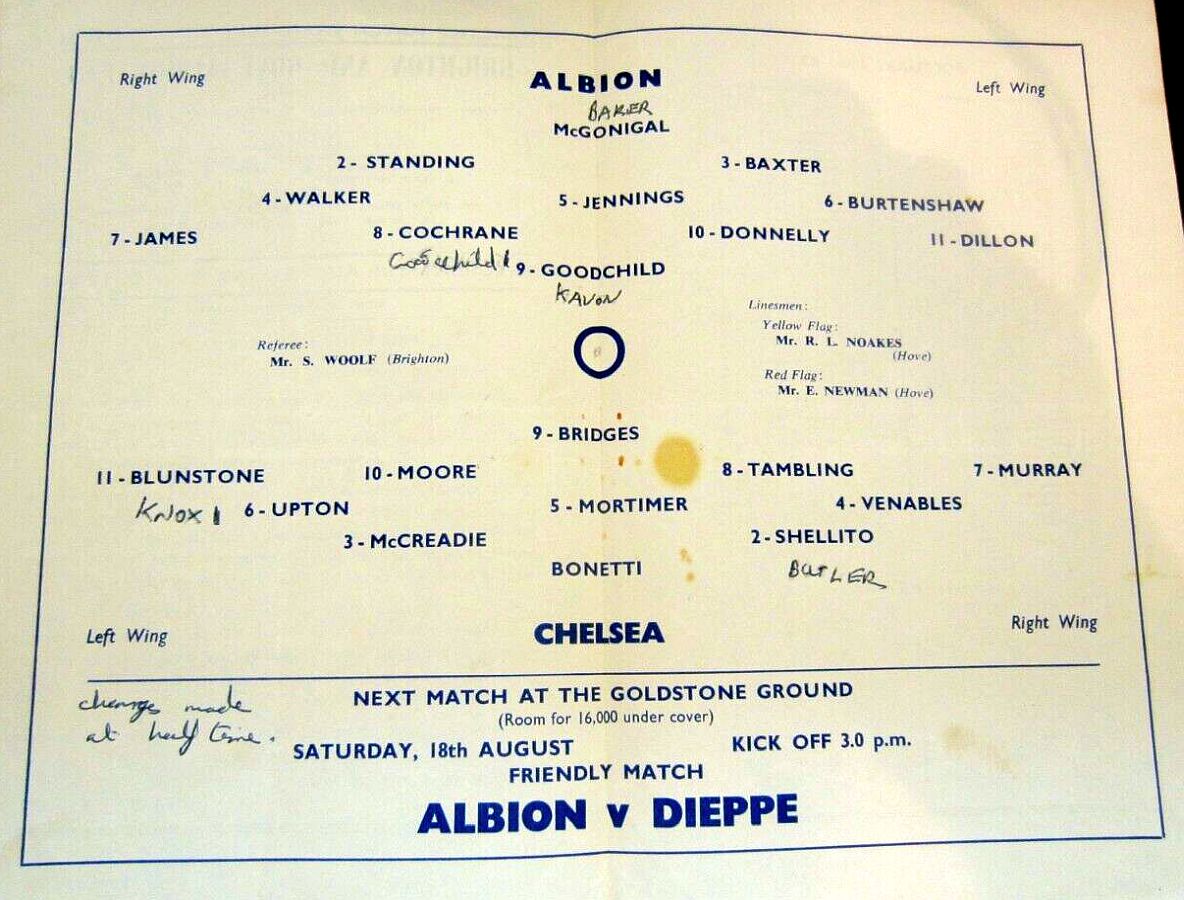 Right Wing
ALBION
Left Wing
BAKER
McGONIGAL
2 - STANDING
3 - BAXTER
4 - WALKER
5 - JENNINGS
6 - BURTENSHAW
7 - JAMES
8 - COCHRANE
10 - DONNELLY
11 - DILLON
Goodchild
9 - GOODCHILD
KAVON
Referee:
Mr. S. WOOLF (Brighton)
Linesmen:
Yellow Flag:
Mr. R. L. NOAKES
(Hove)
Red Flag:
Mr. E. NEWMAN (Hove)
9 - BRIDGES
11 - BLUNSTONE
10 - MOORE
8 - TAMBLING
7 - MURRAY
KNOX
6 - UPTON
5 - MORTIMER
4 - VENABLES
3 - McCREADIE
2 - SHELLITO
BONETTI
BUTLER
Left Wing
CHELSEA
Right Wing
changes made
at half time.
NEXT MATCH AT THE GOLDSTONE GROUND
(Room for 16,000 under cover)
SATURDAY, 18th AUGUST
KICK OFF 3.0 p.m.
FRIENDLY MATCH
ALBION v DIEPPE